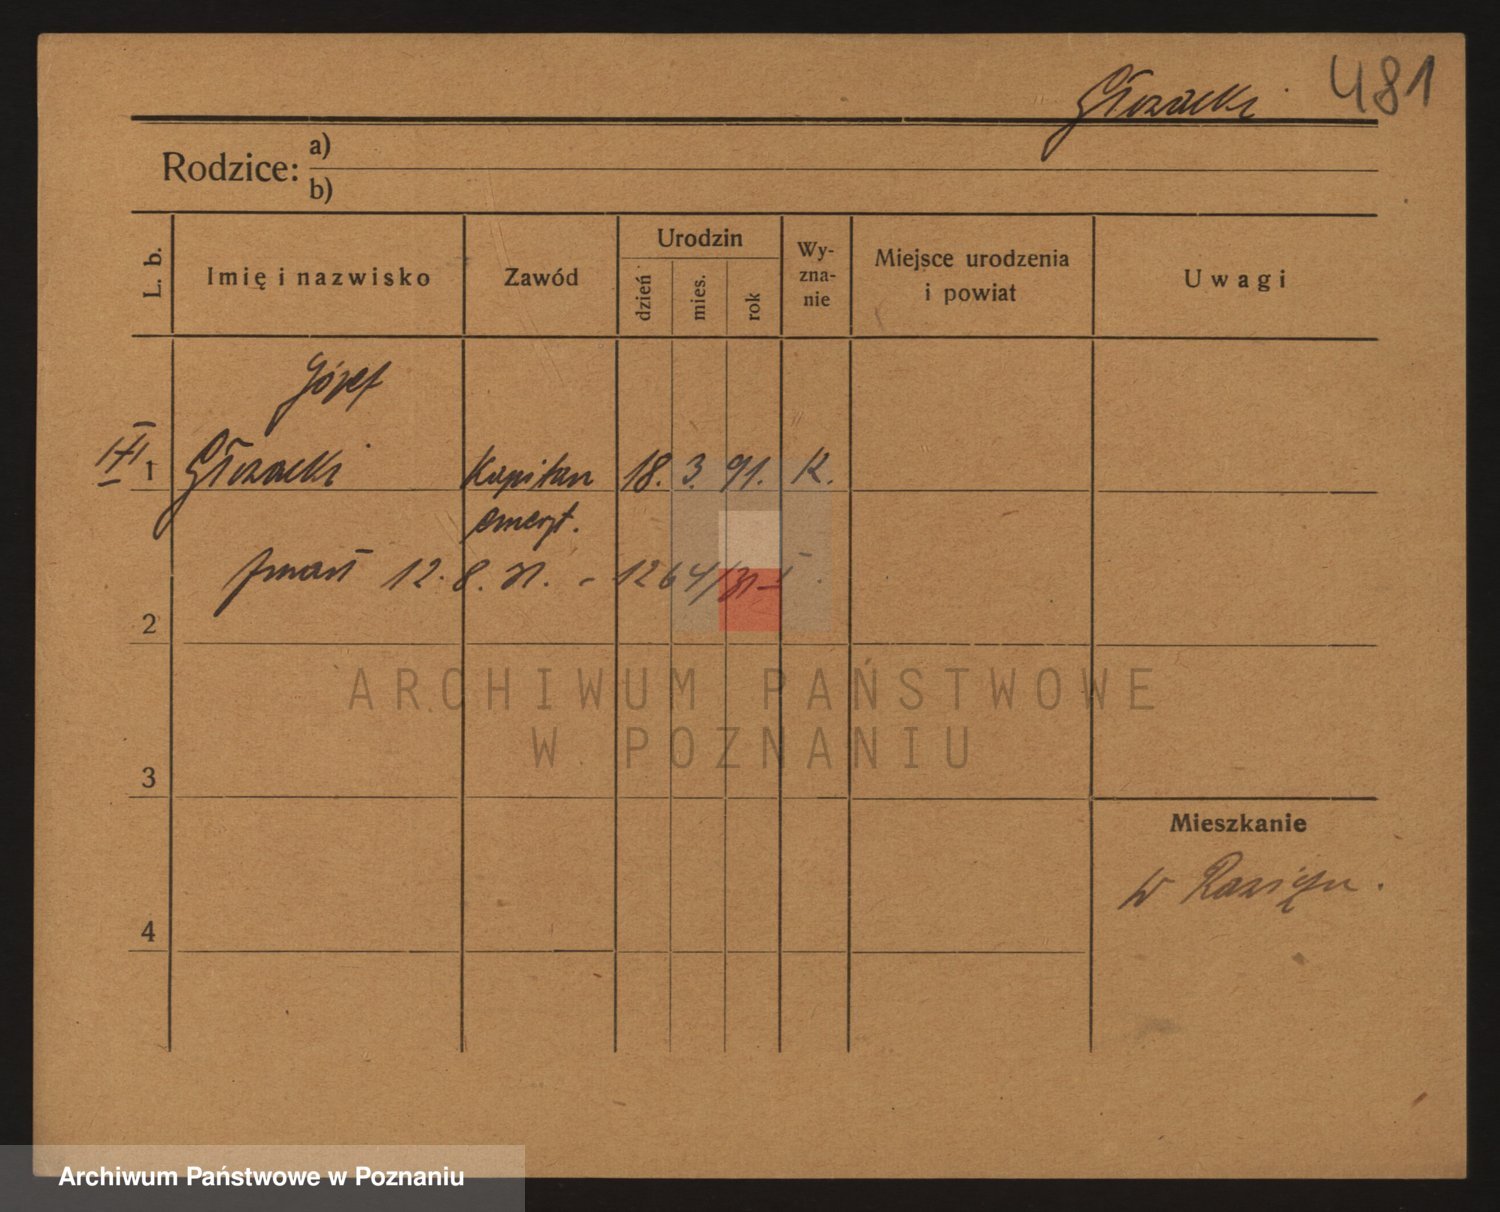 481
Rodzice: a)
b)
L. b.
Imię i nazwisko
Zawód
Urodzin
dzień
mies.
rok
Wy-
zna-
nie
Miejsce urodzenia
i powiat
Uwagi
Józef
1 Kapitan 18. 3. 91. K.
emeryt.
zmarł 12. 8. 31. - 1264/31-I
2
ARCHIWUM PAŃSTWOWE
W POZNANIU
3
Mieszkanie
w
4
Archiwum Państwowe w Poznaniu